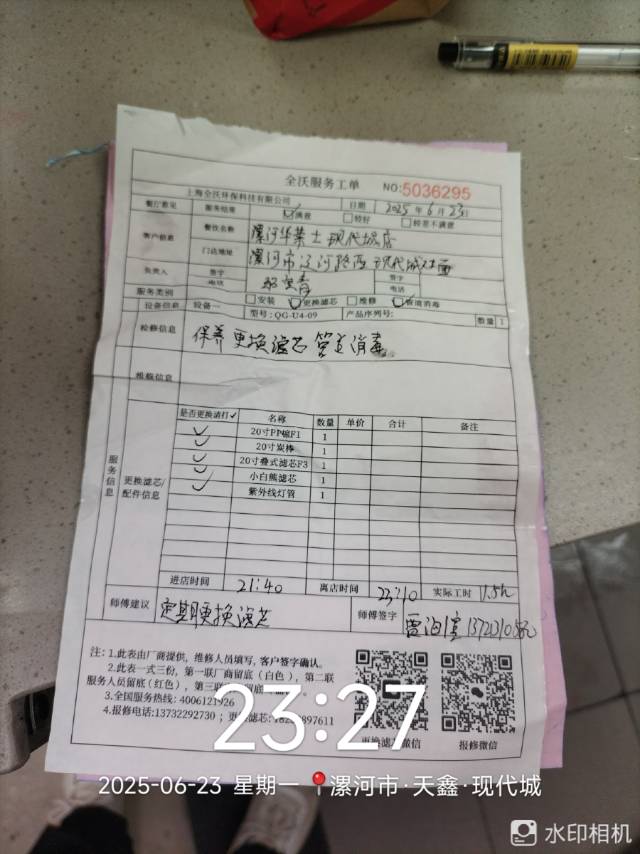 全沃服务工单
NO:5036295
上海全沃环保科技有限公司 日期 2025年6月23日
餐厅意见 服务结果 满意 较好 较差不满意
客户信息 餐饮名称 漯河华莱士现代城店
门店地址 漯河市辽河路西现代城对面
负责人 签字 签字
电话 电话
服务类别 安装 更换滤芯 维修 板道消毒
设备信息 设备一 型号:QG-U4-09 产品序列号: 数量 1
检修信息 保养更换滤芯管道消毒
维修信息
服务信息
更换滤芯/配件信息
是否更换请打✓ 名称 数量 单价 合计 备注
✓ 20寸PP棉F1 1
✓ 20寸炭棒 1
✓ 20寸叠式滤芯F3 1
✓ 小白熊滤芯 1
✓ 紫外线灯管 1
进店时间 21:40 离店时间 23:10 实际工时 1.5h
师傅建议 定期更换滤芯 师傅签字
注:1.此表由厂商提供,维修人员填写,客户签字确认。
2.此表一式三份,第一联厂商留底(白色),第二联
服务人员留底(红色),第三联
3.全国服务热线:4006121926
4.报修电话:13732292730;
897611
更换滤芯微信 报修微信
23:27
2025-06-23 星期一 漯河市·天鑫·现代城
水印相机